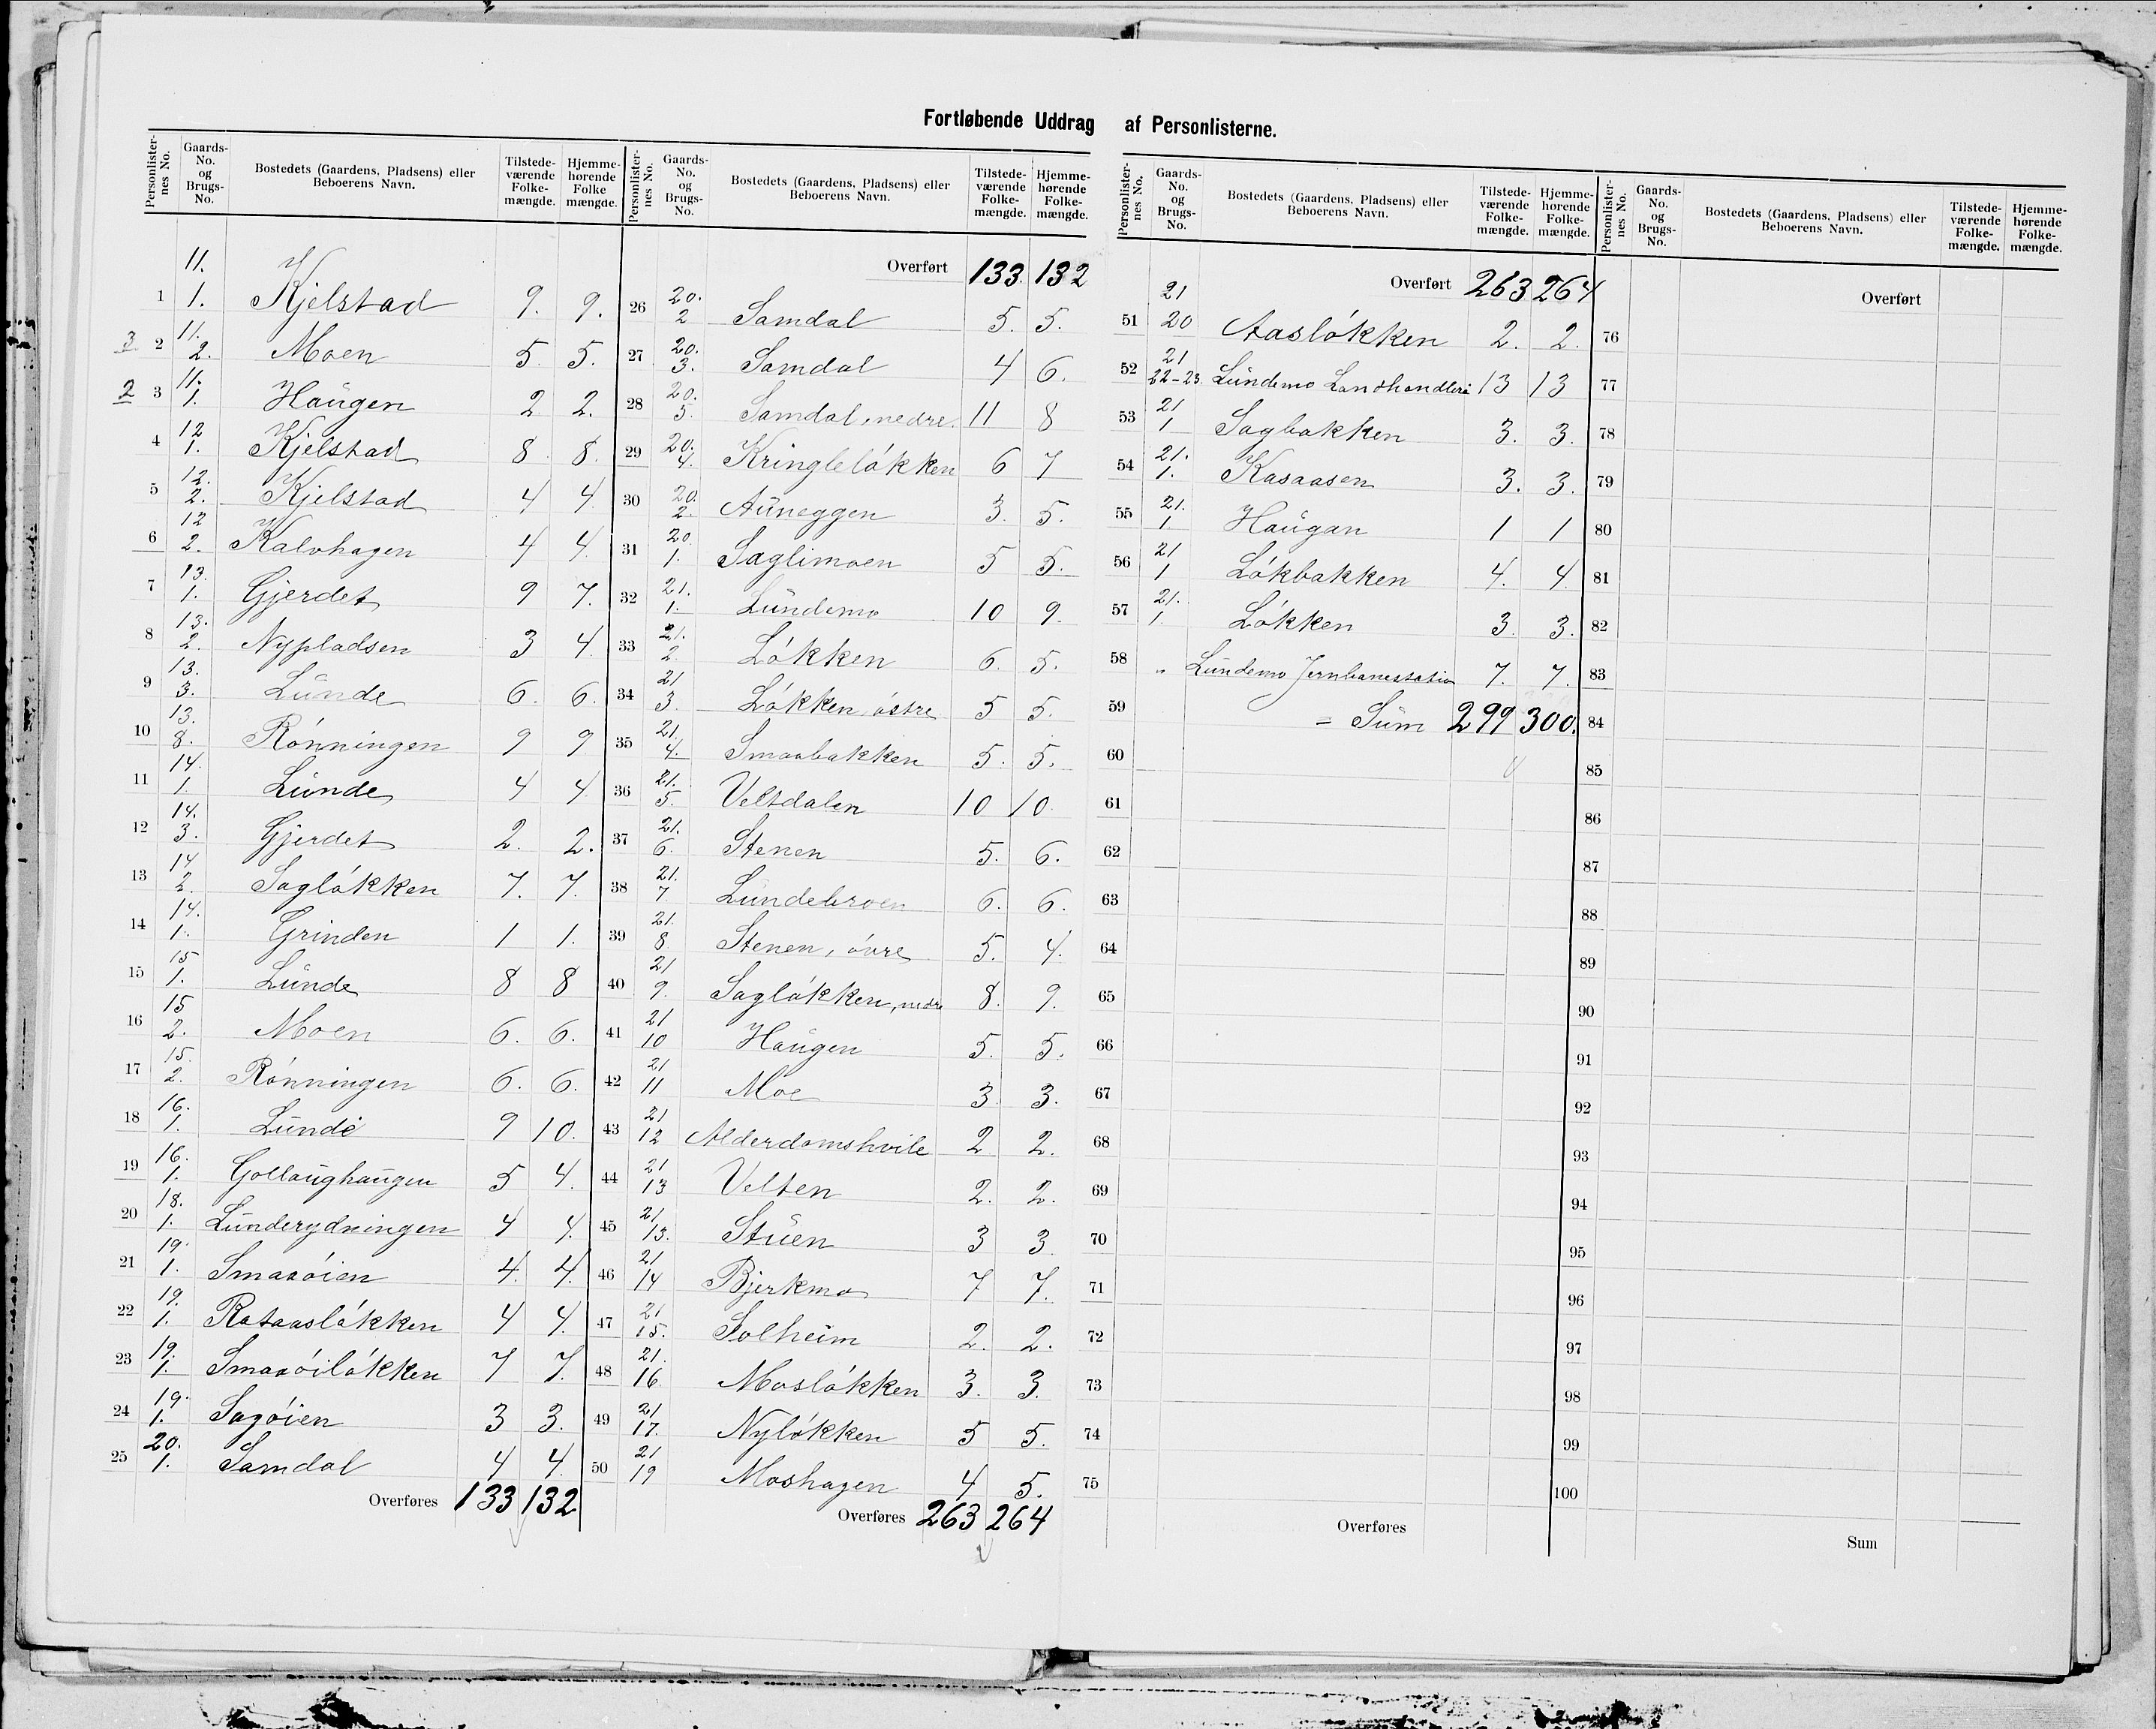 Fortløbende Uddrag af Personlisterne.
Personlisternes No. Gaards-No. og Brugs-No. Bostedets (Gaardens, Pladsens) eller Beboerens Navn. Tilstedeværende Folkemængde. Hjemmehørende Folkemængde.
1 11. 1. Kjelstad 9. 9.
3. 2 11. 2. Moen 5 5.
2 3 11. 1. Haugen 2 2.
4 12 1. Kjelstad 8 8.
5 12. 2. Kjelstad 4 4
6 12 2. Kalvhagen 4 4.
7 13. 1. Gjerdet 9 7.
8 13. 2. Nypladsen 3 4
9 13. 3. Lunde 6. 6.
10 13. 8. Rónningen 9 9
11 14. 1. Lunde 4 4
12 14. 3. Gjerdet 2. 2.
13 14 2. Saglókken 7. 7.
14 14. 1. Grinden 1 1.
15 15 1. Lunde 8 8
16 15 2. Moen 6. 6.
17 15. 2. Rónningen 6. 6.
18 16. 1. Lunde 9 10.
19 16. 1. Gollaughaugen 5 4.
20 18. 1. Lunderydningen 4 4.
21 19. 1. Smaaóien 4. 4.
22 19. 1. Rataaslókken 4 4.
23 19. 1. Smaaóilókken 7 7.
24 19. 1. Sagóien 3 3.
25 20. 1. Samdal 4 4.
Overføres 133 132
Personlisternes No. Gaards-No. og Brugs-No. Bostedets (Gaardens, Pladsens) eller Beboerens Navn. Tilstedeværende Folkemængde. Hjemmehørende Folkemængde.
Overført 133. 132
26 20. 2 Samdal 5. 5.
27 20. 3. Samdal 4 6.
28 20. 5. Samdal, nedre. 11 8
29 20. 4. Kringlelókken 6 7
30 20. 2. Auneggen 3. 5.
31 20 1. Saglimoen 5 5.
32 21. 1. Lundemo 10 9.
33 21. 2. Lókken 6. 5.
34 21 3. Lókken, óstre 5 5.
35 21. 4. Smaabakken 5. 5.
36 21. 5. Veltdalen 10 10.
37 21. 6. Stenen 5. 6.
38 21. 7 Lundebroen 6. 6.
39 21. 8. Stenen, óvre 5. 4.
40 21 9. Saglókken, nedre 8. 9.
41 21 10 Haugen 5. 5.
42 21 11 Moe 3. 3.
43 21 12 Alderdomshvile 2 2.
44 21 13 Velten 2. 2.
45 21 13. Stuen 3 3
46 21 14 Bjerkmo 7 7.
47 21 15. Solheim 2. 2.
48 21. 16. Moslókken 3. 3.
49 21 17. Nylókken 5 5.
50 21 19 Moshagen 4 5.
Overføres 263 264
Personlisternes No. Gaards-No. og Brugs-No. Bostedets (Gaardens, Pladsens) eller Beboerens Navn. Tilstedeværende Folkemængde. Hjemmehørende Folkemængde.
Overført 263 264
51 21 20 Aaslókken 2. 2.
52 21 22-23. Lundemo Landhandleri 13 13
53 21 1 Sagbakken 3. 3.
54 21. 1. Kasaasen 3. 3.
55 21. 1 Haugan 1 1
56 21 1 Lókbakken 4. 4
57 21. 1. Lókken 3. 3.
58 " Lundemo Jernbanestation 7. 7.
59 = Sum 299 300.
60
61
62
63
64
65
66
67
68
69
70
71
72
73
74
75
Overføres
Personlisternes No. Gaards-No. og Brugs-No. Bostedets (Gaardens, Pladsens) eller Beboerens Navn. Tilstedeværende Folkemængde. Hjemmehørende Folkemængde.
Overført
76
77
78
79
80
81
82
83
84
85
86
87
88
89
90
91
92
93
94
95
96
97
98
99
100
Sum